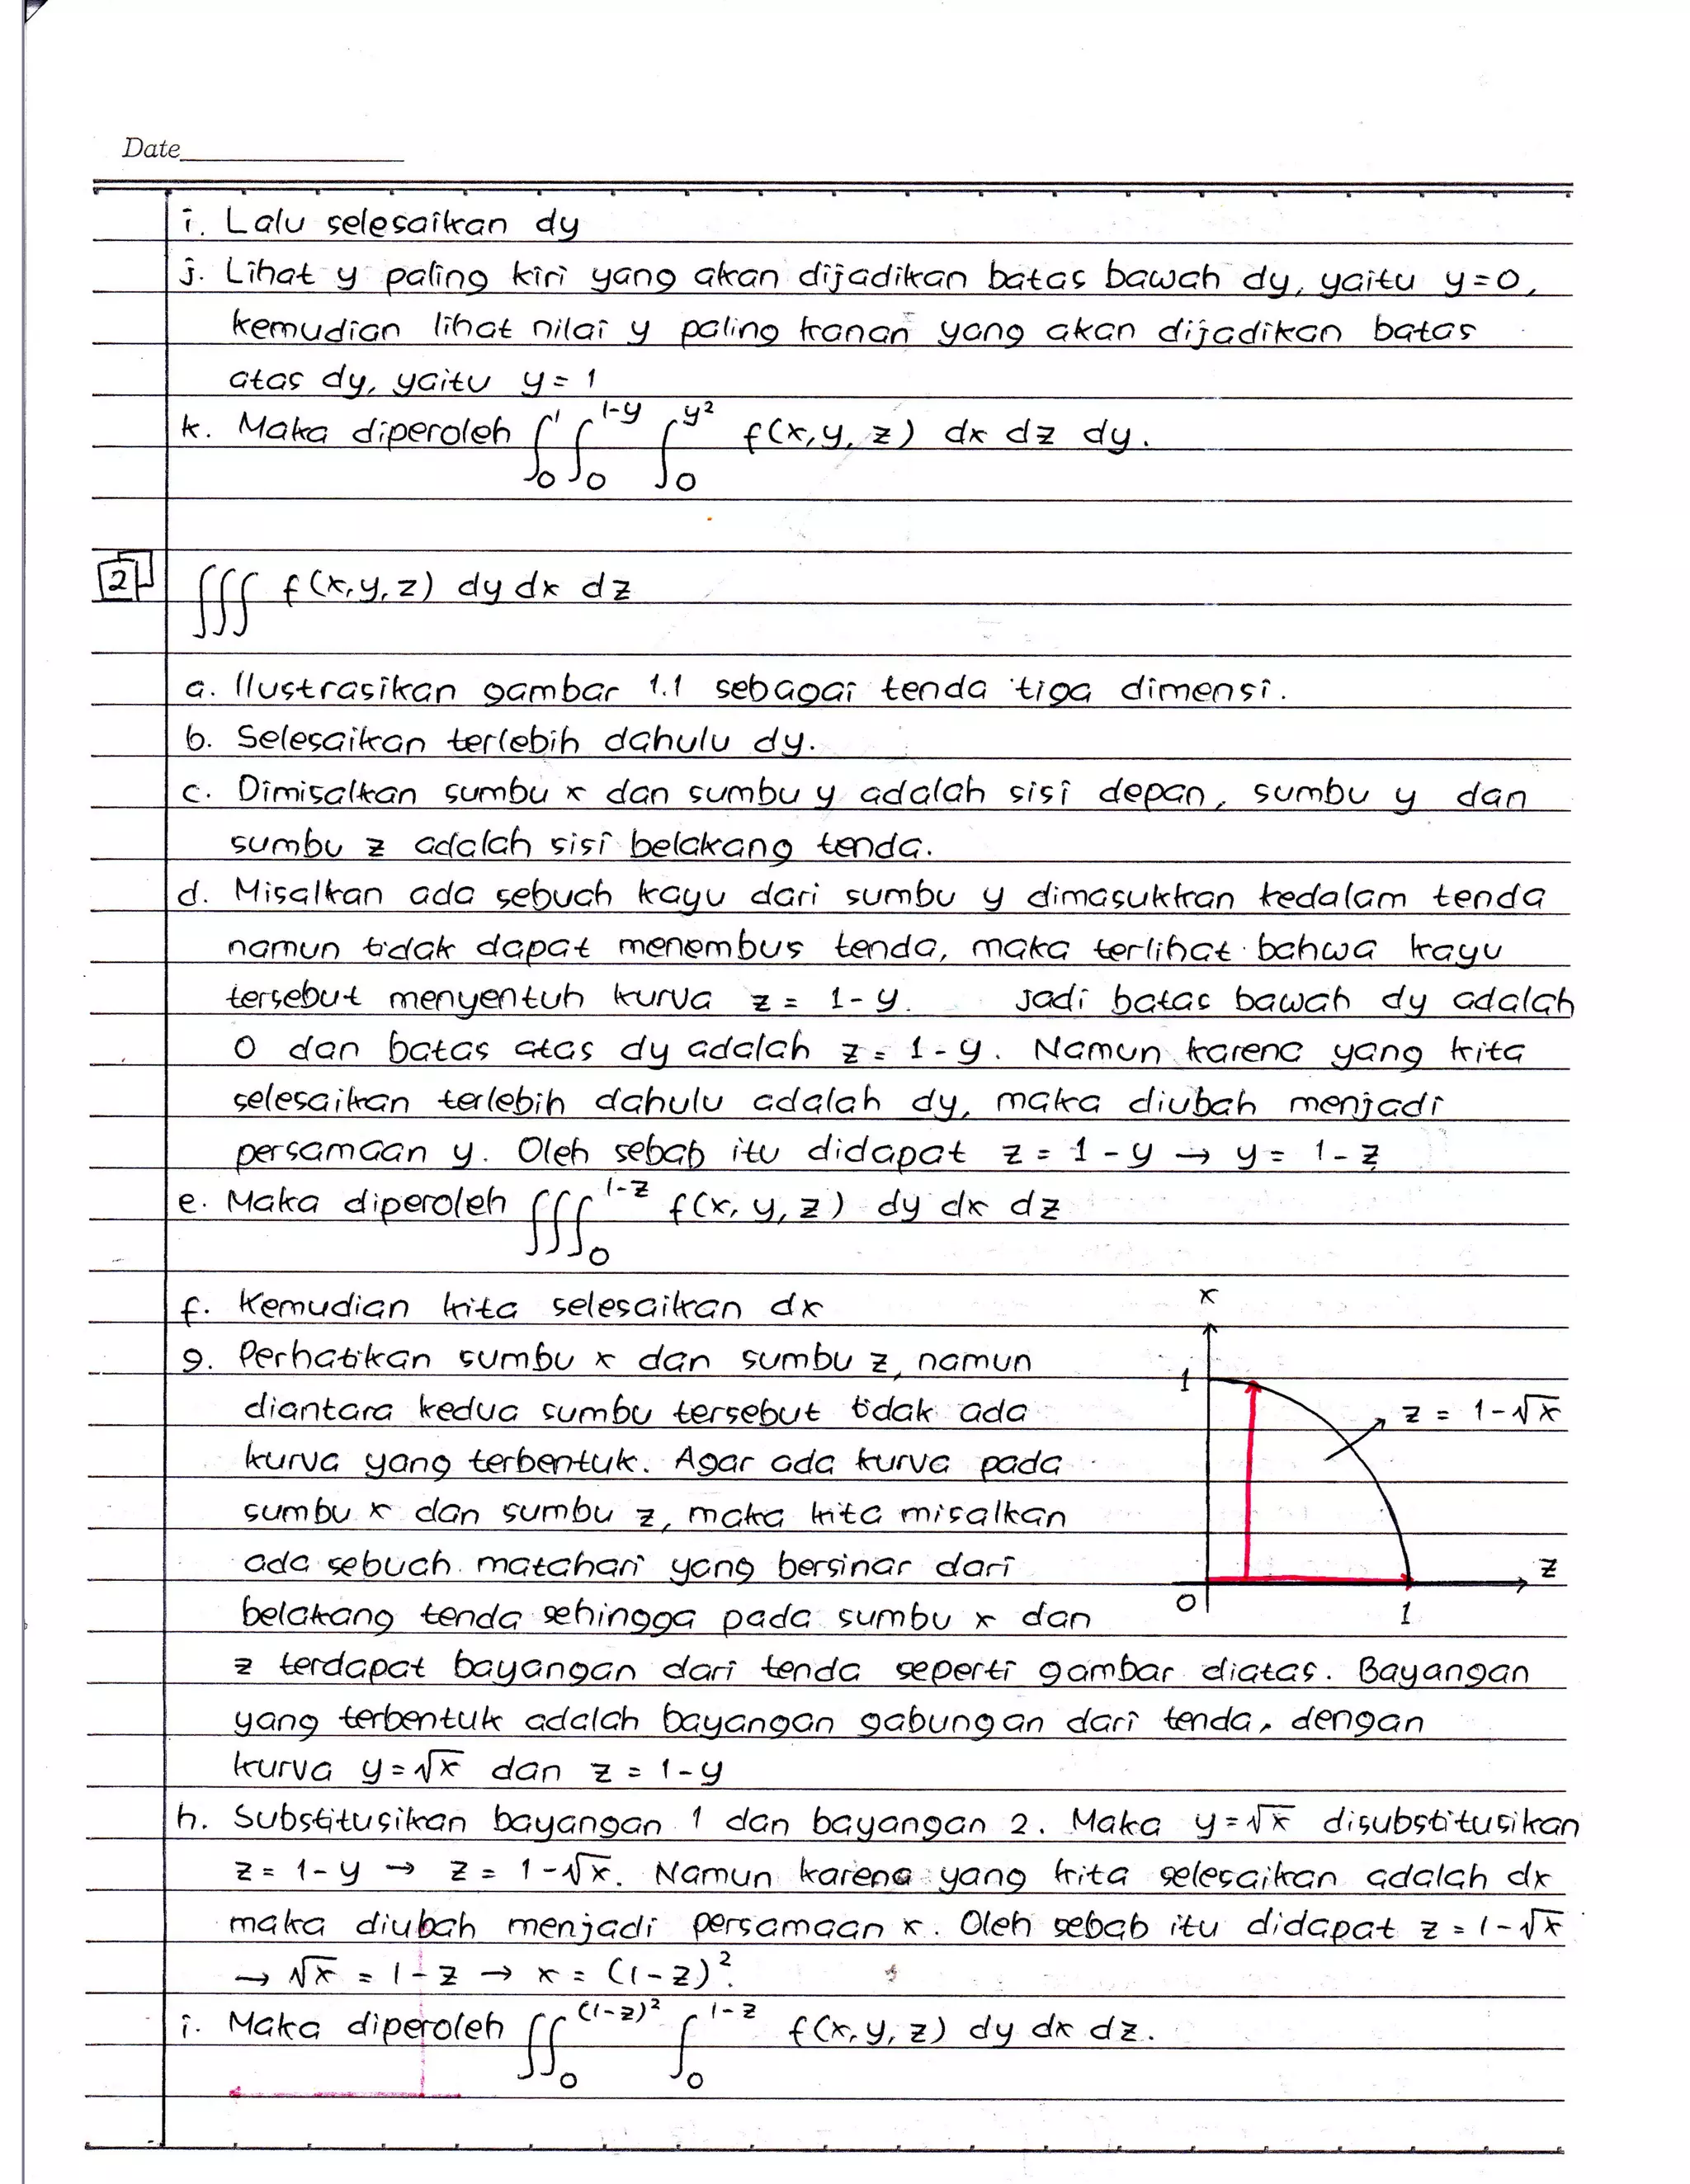 Date
i. Lalu selesaikan dy
j. Lihat y paling kiri yang akan dijadikan batas bawah dy, yaitu y=0,
kemudian lihat nilai y paling kanan yang akan dijadikan batas
atas dy, yaitu y = 1
k. Maka diperoleh ∫₀¹ ∫₀^(1-y) ∫₀^(y²) f(x,y,z) dx dz dy.
2 ∫∫∫ f(x,y,z) dy dx dz
a. Ilustrasikan gambar 1.1 sebagai tenda tiga dimensi.
b. Selesaikan terlebih dahulu dy.
c. Dimisalkan sumbu x dan sumbu y adalah sisi depan, sumbu y dan
sumbu z adalah sisi belakang tenda.
d. Misalkan ada sebuah kayu dari sumbu y dimasukkan kedalam tenda
namun tidak dapat menembus tenda, maka terlihat bahwa kayu
tersebut menyentuh kurva z = 1-y. Jadi batas bawah dy adalah
0 dan batas atas dy adalah z = 1-y. Namun karena yang kita
selesaikan terlebih dahulu adalah dy, maka diubah menjadi
persamaan y. Oleh sebab itu didapat z = 1 - y → y = 1 - z
e. Maka diperoleh ∫∫∫₀^(1-z) f(x,y,z) dy dx dz
f. Kemudian kita selesaikan dx
g. Perhatikan sumbu x dan sumbu z, namun
diantara kedua sumbu tersebut tidak ada
kurva yang terbentuk. Agar ada kurva pada
sumbu x dan sumbu z, maka kita misalkan
ada sebuah matahari yang bersinar dari
belakang tenda sehingga pada sumbu x dan
x
1
z = 1-√x
z
0
1
z terdapat bayangan dari tenda seperti gambar diatas. Bayangan
yang terbentuk adalah bayangan gabungan dari tenda, dengan
kurva y=√x dan z = 1-y
h. Substitusikan bayangan 1 dan bayangan 2. Maka y=√x disubstitusikan
z = 1-y → z = 1-√x. Namun karena yang kita selesaikan adalah dx
maka diubah menjadi persamaan x. Oleh sebab itu didapat z = 1-√x
→ √x = 1-z → x = (1-z)².
i. Maka diperoleh ∫∫₀^((1-z)²) ∫₀^(1-z) f(x,y,z) dy dx dz.